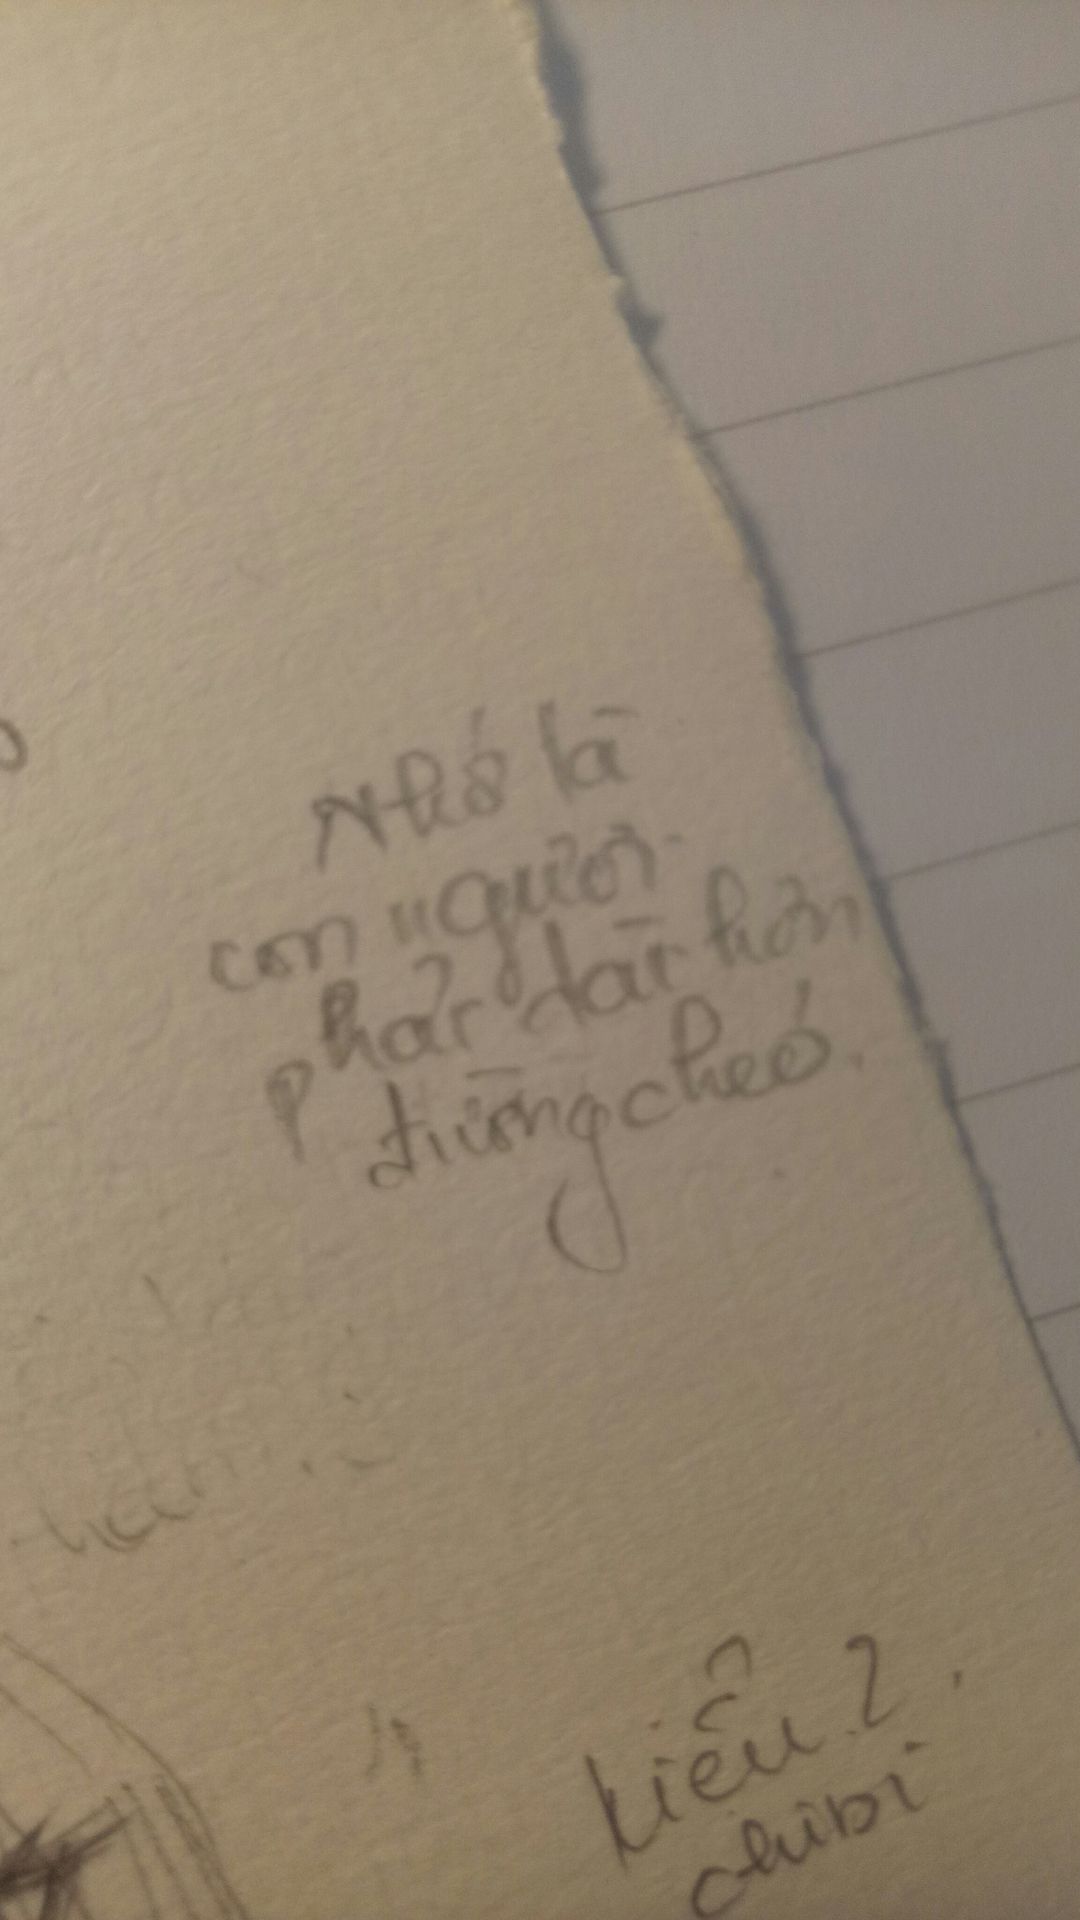 Nhớ là
con người
phải dài hơn
đường chéo.
Kiểu 2
chibi